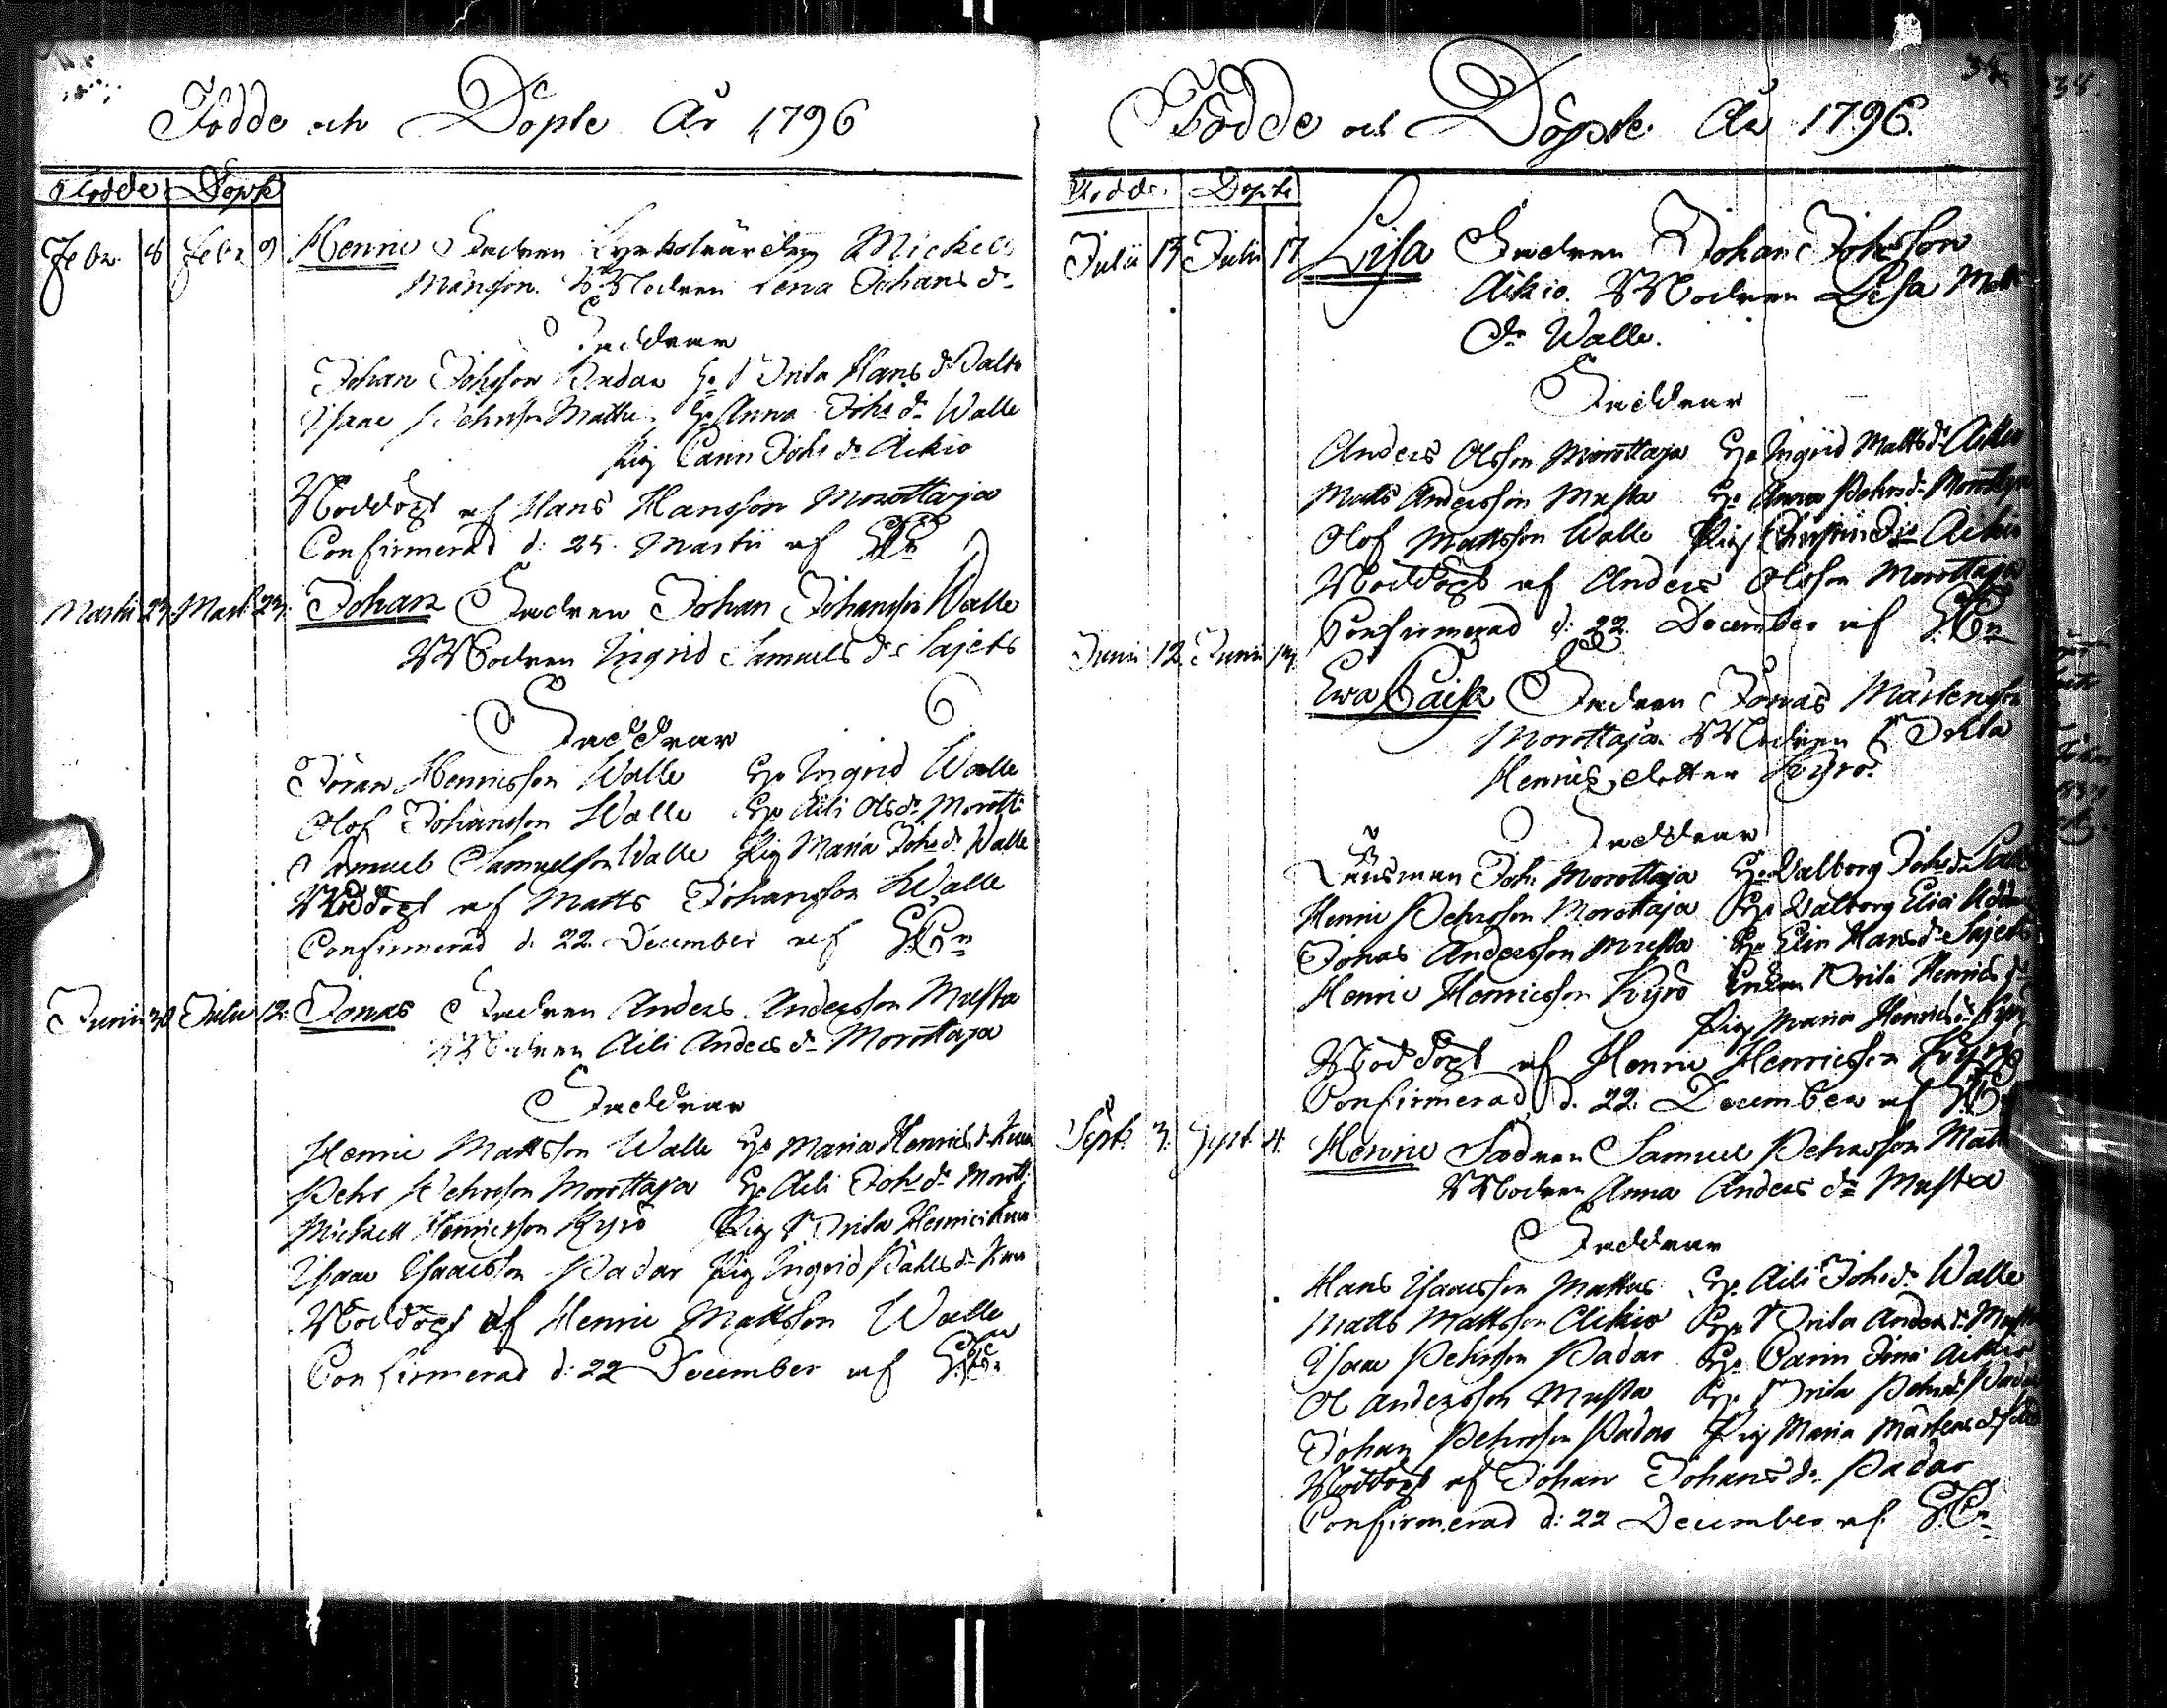 Födde och Döpte År 1796
Födde Döpte
Febr. 8 Febr 9 Henric Fadren Kyrkolwärden Mickell
Månsson. Modren Lena Johans dr
Faddrar
Johan Johsson Padar H: Brita Hans dr Valte
Isaac Pehrsson Mattus H: Anna Johs dr Walle
Pig Carin Johs dr Aikio
Nöddöpt af Hans Hansson Morottaja
Confirmerad d: 25. Martii af
Martii 23 Mart 23. Johan Fadren Johan Johansson Walle
Modren Ingrid Samuels dr Sajets
Faddrar
Jöran Henricsson Walle H: Ingrid Walle
Olof Johansson Walle H: Aili Ols dr Morotti
Samuel Samuelsson Walle Pig Maria Johs dr Walle
Nöddöpt af Matts Johansson Walle
Confirmerad d. 22. December af
Junii 30 Julii 12. Jonas Fadren Anders Andersson Musta
Modren Aili Anders dr Morottaja
Faddrar
Henric Mattsson Walle H: Maria Henrics dr
Pehr Pehrsson Morottaja H: Aili Johs dr Morotti
Mickell Henricsson Kyrö Pig Brita Henrici
Isaac Isaacsson Padar Pig Ingrid Påhls dr
Nöddöpt af Henric Mattsson Walle
Confirmerad d: 22 December af
Födde och Döpte År 1796.
Födde. Döpte
Julii 13 Julii 17 Lisa Fadren Johan Johsson
Aikio. Modren Lisa Matts
dr Walle.
Faddrar
Anders Olsson Morottaja H: Ingrid Matts dr Aikio
Matts Andersson Musta H: Anna Pehrs dr Morottaja
Olof Mattsson Walle Pig Christin dr Aikio
Nöddöpt af Anders Olsson Morottaja
Confirmerad d: 22. December af
Junii 12. Junii Ewa Caisa Fadren Jonas Mårtensson
Morottaja. Modren Brita
Henrics dotter Kyrö.
Faddrar
Länsman Joh. Morottaja H: Walborg Johs dr
Henric Pehrsson Morottaja H: Walborg Eliæ
Jonas Andersson Musta H: Elin Hans dr Sajets
Henric Henricsson Kyrö Enkan Brita Henrics dr
Pig Maria Henrics dr Kyrö
Nöddöpt af Henric Henricsson Kyrö
Confirmerad d. 22. December af
Sept. 3. Sept. 4. Henric Fadren Samuel Pehrsson Matt
Modren Anna Anders dr Musta
Faddrar
Hans Isaacsson Mattus H: Aili Johs dr Walle
Matts Mattsson Aikio H: Brita Anders dr Musta
Isaac Pehrsson Padar H: Carin Aikio
Ol Andersson Musta H: Brita Pehrs dr Padar
Johan Pehrsson Padar Pig Maria Mårtens dr
Nöddöpt af Johan Johans dr Padar
Confirmerad d: 22 December af